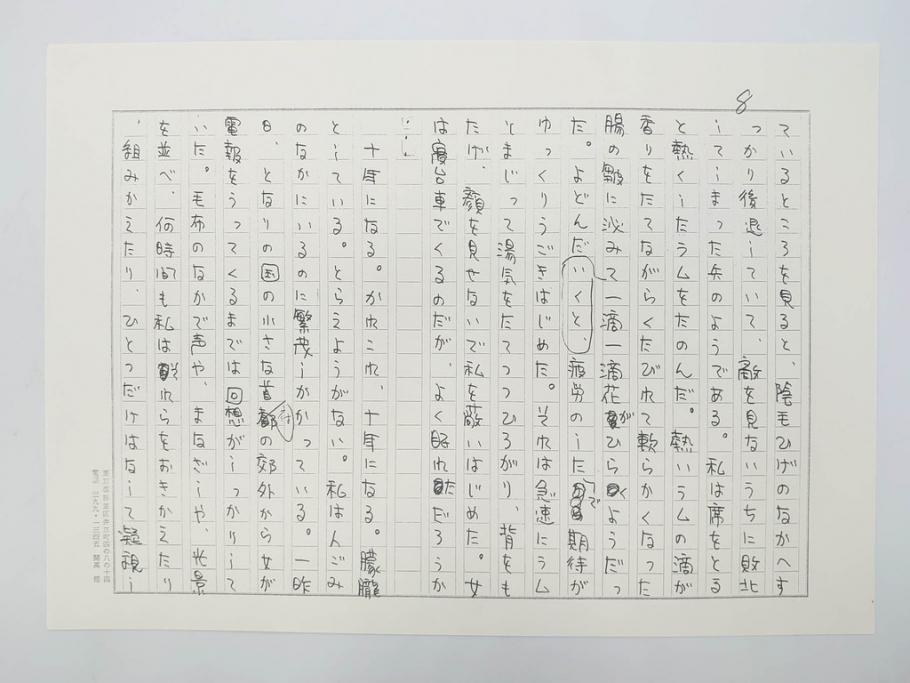 8
ているところを見ると、陰毛ひげのなかへす
っかり後退していて、敵を見ないうちに敗北
してしまった兵のようである。私は席をとる
と熱くしたラムをたのんだ。熱いラムの滴が
香りをたてながらくたびれて軟らかくなった
腸の皺に泌みて一滴一滴花がひらくようだっ
た。よどんだいくと、疲労のした で期待が
ゆっくりうごきはじめた。それは急速にラム
とまじって湯気をたてつつひろがり、背をも
たげ、顔を見せないで私を蔽いはじめた。女
は寝台車でくるのだが、よく眠れただろうか
……
十年になる。かれこれ、十年になる。朦朧
としている。とらえようがない。私はんごみ
のなかにいるのに繁茂しかかっている。一昨
日、となりの国の小さな首府の郊外から女が
電報をうってくるまでは回想がしっかりして
いた。毛布のなかで声や、まなざしや、光景
を並べ、何時間も私はそれらをおきかえたり
、組みかえたり、ひとつだけはなして凝視し
東京都杉並区井草町四の八の十四
電話 三九九・一三四五 開高 健